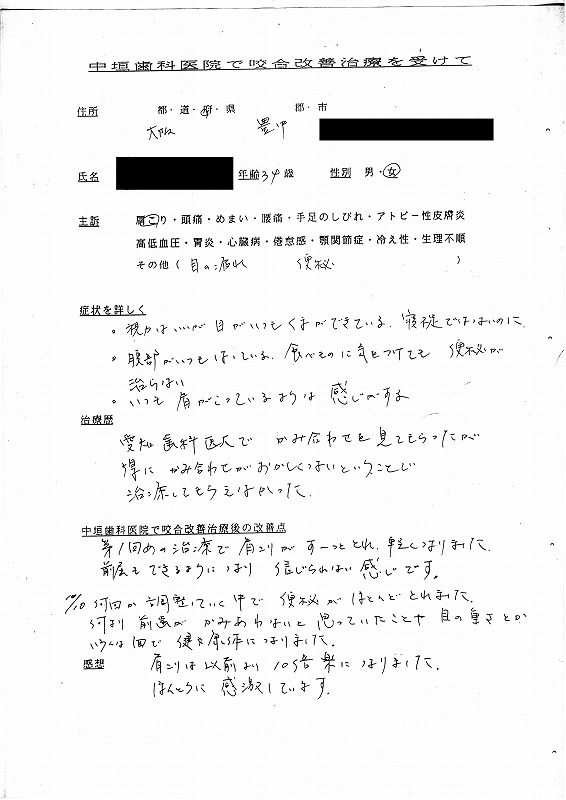 中垣歯科医院で咬合改善治療を受けて
住所 都・道・府・県 郡・市
大阪 豊中
氏名 年齢34歳 性別 男・女
主訴 肩こり・頭痛・めまい・腰痛・手足のしびれ・アトピー性皮膚炎
高低血圧・胃炎・心臓病・倦怠感・顎関節症・冷え性・生理不順
その他( 目の疲れ 便秘 )
症状を詳しく
。視力はいいが目がいつもくまができている。寝不足ではないのに
。腹部がいつもはっている。食べものに気をつけても 便秘が
治らない
。いつも肩がこっているような感じがする
治療歴
愛知歯科医大で かみ合わせを見てもらったが
かみ合わせがおかしくないということで
治療してもらえなかった。
中垣歯科医院で咬合改善治療後の改善点
第1回めの治療で肩こりがすーっととれ、軽くなりました。
前屈もできるようになり 信じられない感じです。
何回か調整していく中で 便秘がほとんどとれました。
何より前歯がかみあわないと思っていたことや目の重さとか
いろいろな面で健康体になりました。
感想 肩こりは以前より10倍楽になりました。
ほんとうに感激しています。